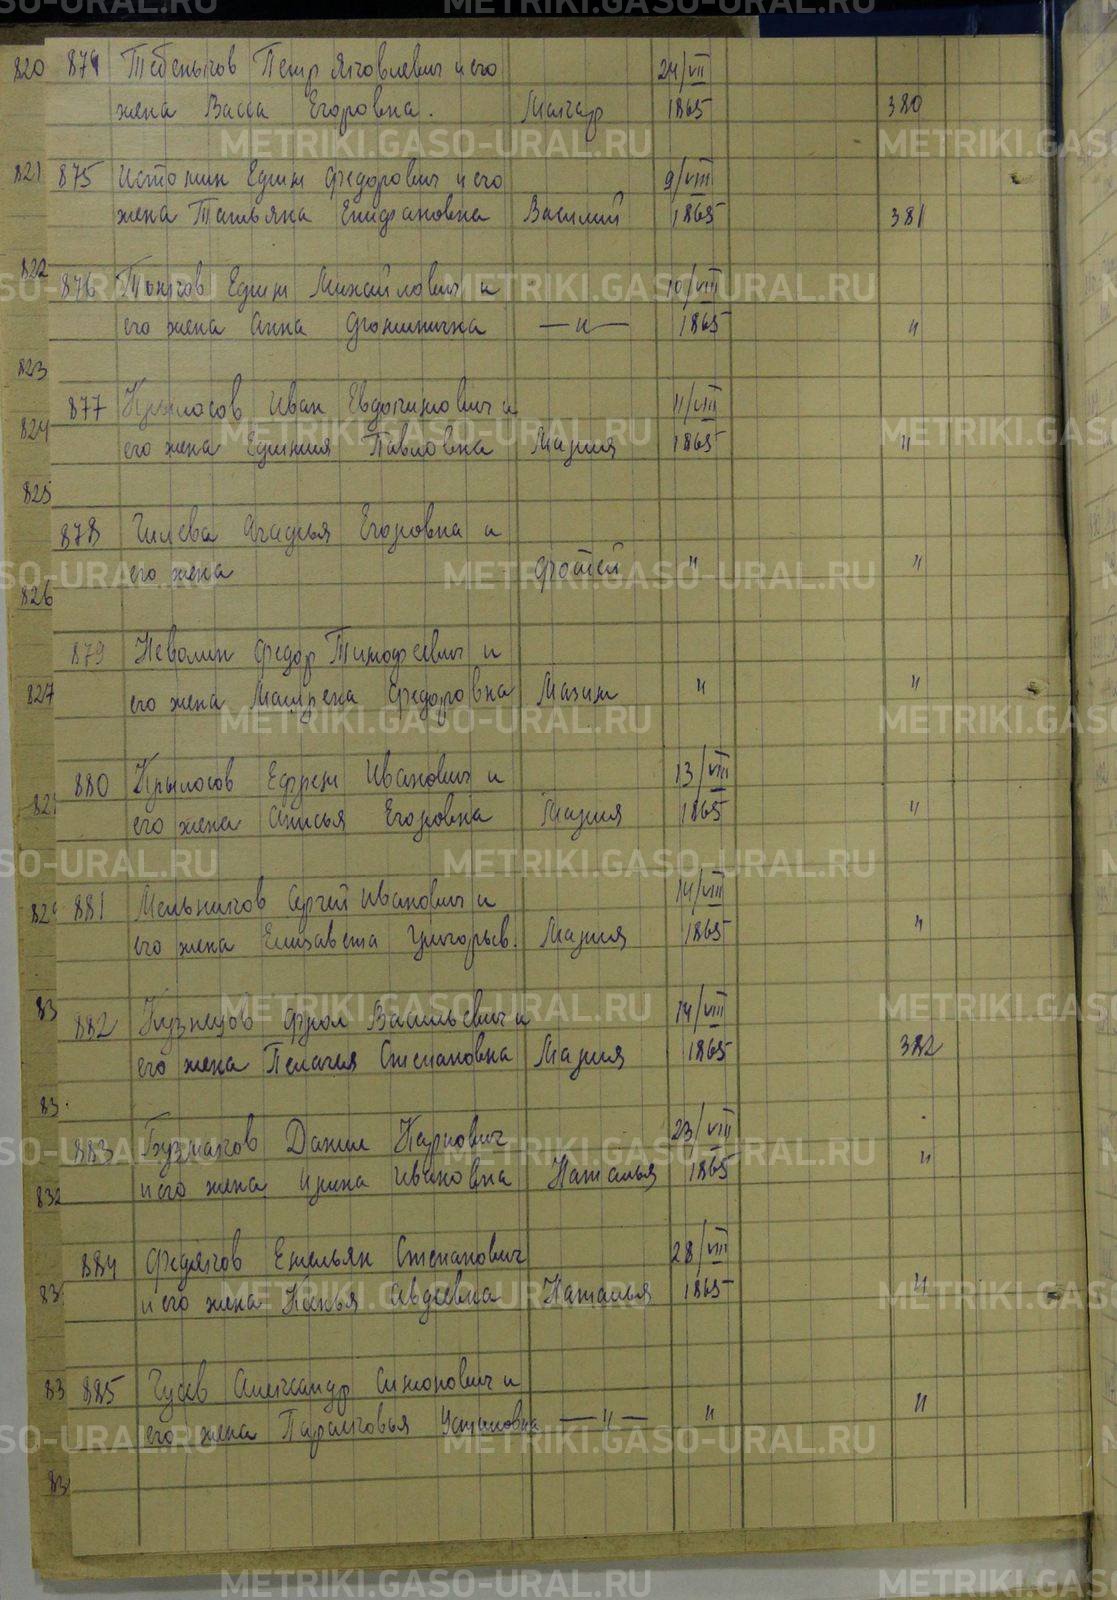 820 874 Тебеньков Петр Яковлевич и его 24/VII
жена Васса Егоровна. Макар 1865 380
821 875 Истомин Ефим Федорович и его 9/VIII
жена Татьяна Епифановна Василий 1865 381
822 876 Тоньков Ефим Михайлович и 10/VIII
его жена Анна —"— 1865 "
823
877 Крылосов Иван Евдокимович и 11/VIII
824 его жена Ефимия Павловна Мария 1865 "
825
878 Гилева Агафья Егоровна и
его жена Фотей " "
826
879 Неволин Федор Тимофеевич и
827 его жена Матрена Федоровна Максим " "
880 Крылосов Ефрем Иванович и 13/VIII
его жена Анисья Егоровна Мария 1865 "
881 Мельников Сергей Иванович и 14/VIII
его жена Елизавета Григорьев. Мария 1865 "
83 882 Кузнецов Фрол Васильевич и 14/VIII
его жена Пелагея Степановна Мария 1865 382
83
883 Бузмаков Данил Карпович 23/VIII
832 и его жена Ирина Ивановна Наталья 1865 "
884 Федяков Емельян Степанович 28/VIII
83 и его жена Авдеевна Наталья 1865 "
83 885 Гусев Александр Симонович и
его жена Парасковья —"— " "
83
METRIKI.GASO-URAL.RU